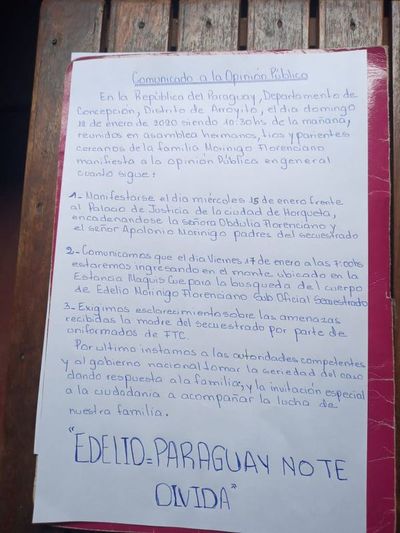 Comunicado a la Opinión Pública
En la República del Paraguay, Departamento de
Concepción, Distrito de Arroyito, el día domingo
12 de enero de 2020 siendo 10:30hs de la mañana,
reunidos en asamblea hermanos, tios y parientes
cercanos de la familia Morinigo Florenciano
manifiesta a la opinión Pública en general
cuanto sigue:
1- Manifestarse el dia miércoles 15 de enero frente
al Palacio de Justicia de la ciudad de Horqueta,
encadenandose la señora Obdulia Florenciano y
el señor Apolonio Morinigo padres del secuestrado
2- Comunicamos que el día Viernes 17 de enero a las 7:00hs
estaremos ingresando en el monte ubicado en la
Estancia Maquis Cue para la busqueda del cuerpo
de Edelio Morinigo Florenciano Sub Oficial Secuestrado
3- Exigimos esclarecimiento sobre las amenazas
recibidas la madre del secuestrado por parte de
uniformados de FTC.
Por ultimo instamos a las autoridades competentes
y al gobierno nacional tomar la seriedad del caso
dando respuesta a la familia, y la invitación especial
a la ciudadanía a acompañar la lucha de
nuestra familia.
"EDELIO=PARAGUAY NO TE
OLVIDA"